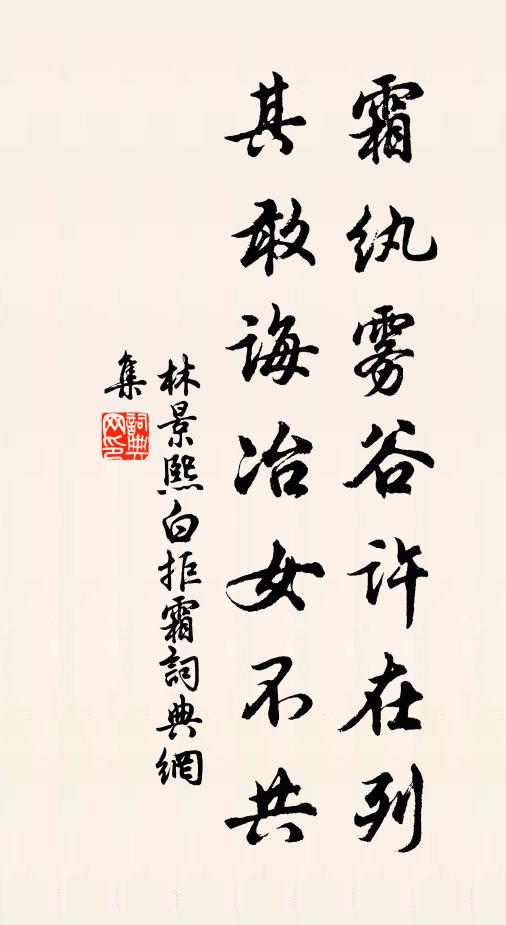 霜纨雾谷许在列
其敢诲冶女不共
林景熙白拒霜詞典網
集
詞典
网印